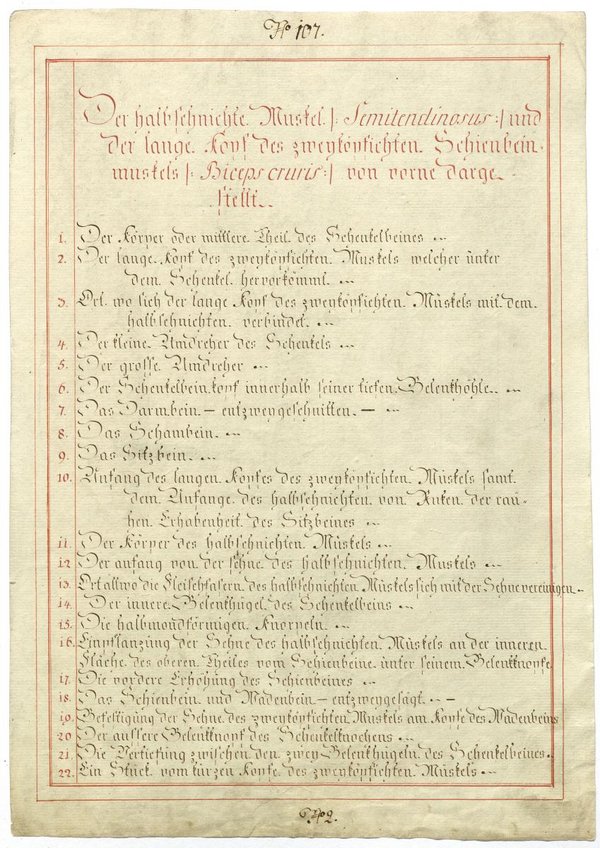 No 107.
Der halbsehnichte Muskel |: Semitendinosus :| und
der lange Kopf des zweyköpfichten Schienbein-
muskels |: Biceps cruris :| von vorne darge-
stellt.
1. Der Körper oder mittlere Theil des Schenkelbeines
2. Der lange Kopf des zweyköpfichten Muskels welcher unter
dem Schenkel hervorkömmt.
3. Ort wo sich der lange Kopf des zweyköpfichten Muskels mit dem
halbsehnichten verbindet.
4. Der kleine Umdreher des Schenkels
5. Der grosse Umdreher
6. Der Schenkelbeinkopf innerhalb seiner tiefen Gelenkhöhle.
7. Das Darmbein – entzweygeschnitten. –
8. Das Schambein.
9. Das Sitzbein.
10. Anfang des langen Kopfes des zweyköpfichten Muskels samt
dem Anfange des halbsehnichten von der rau-
hen Erhabenheit des Sitzbeines
11. Der Körper des halbsehnichten Muskels
12 Der anfang von der sehne des halbsehnichten Muskels
13. Ort allwo die Fleischfasern des halbsehnichten Muskels sich mit der Sehne vereinigen
14. Der innere Gelenkhügel des Schenkelbeins
15. Die halbmondförmigen Knorpeln.
16. Einpflanzung der Sehne des halbsehnichten Muskels an der inneren
Fläche des oberen Theiles vom Schienbeine unter seinem Gelenkknopfe
17. Die vordere Erhöhung des Schienbeines
18. Das Schienbein und Wadenbein – entzweygesägt. –
19. Befestigung der Sehne des zweyköpfichten Muskels am Kopfe des Wadenbeins
20 Der äussere Gelenkknopf des Schenkelknochens
21. Die Vertiefung zwischen den zwey Gelenkhügeln des Schenkelbeines.
22. Ein Stück vom kurzen Kopfe des zweyköpfichten Muskels
No 2.